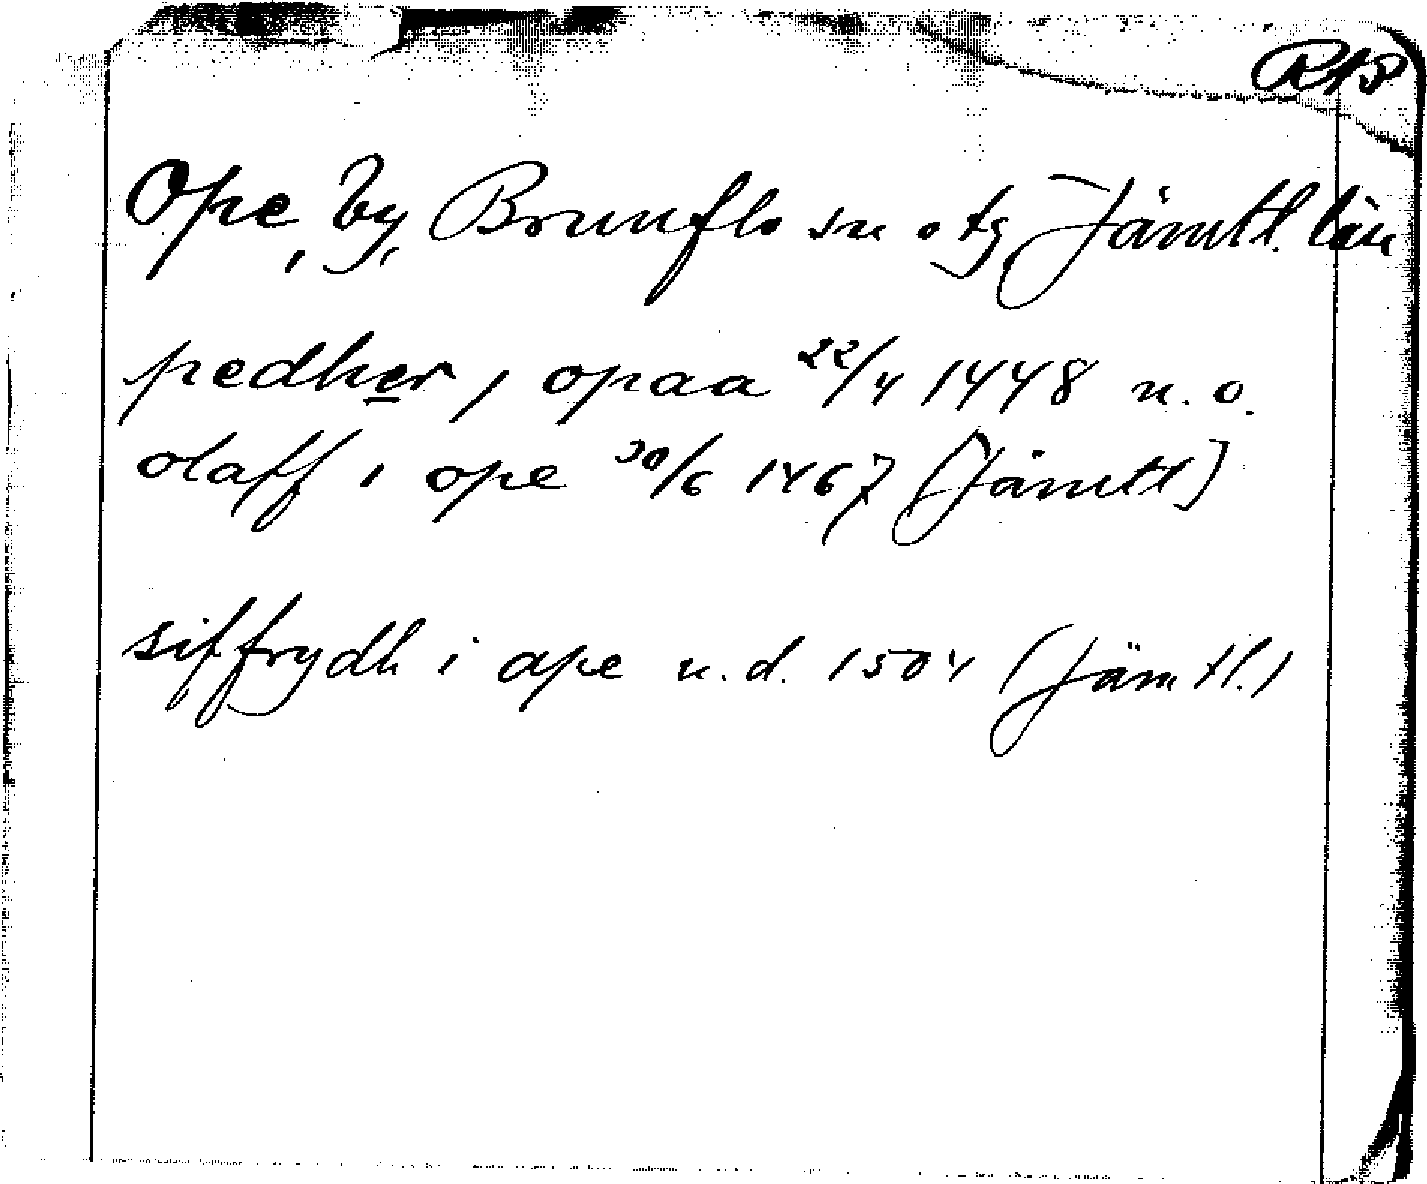 RAP
Ope, by, Brunflo sn o tg Jämtl. län
pedher i opaa 22/4 1448 n. o.
olaff i ope 30/6 1467 [Jämtl]
siffrydh i ope u.d. 1504 (Jämtl.)